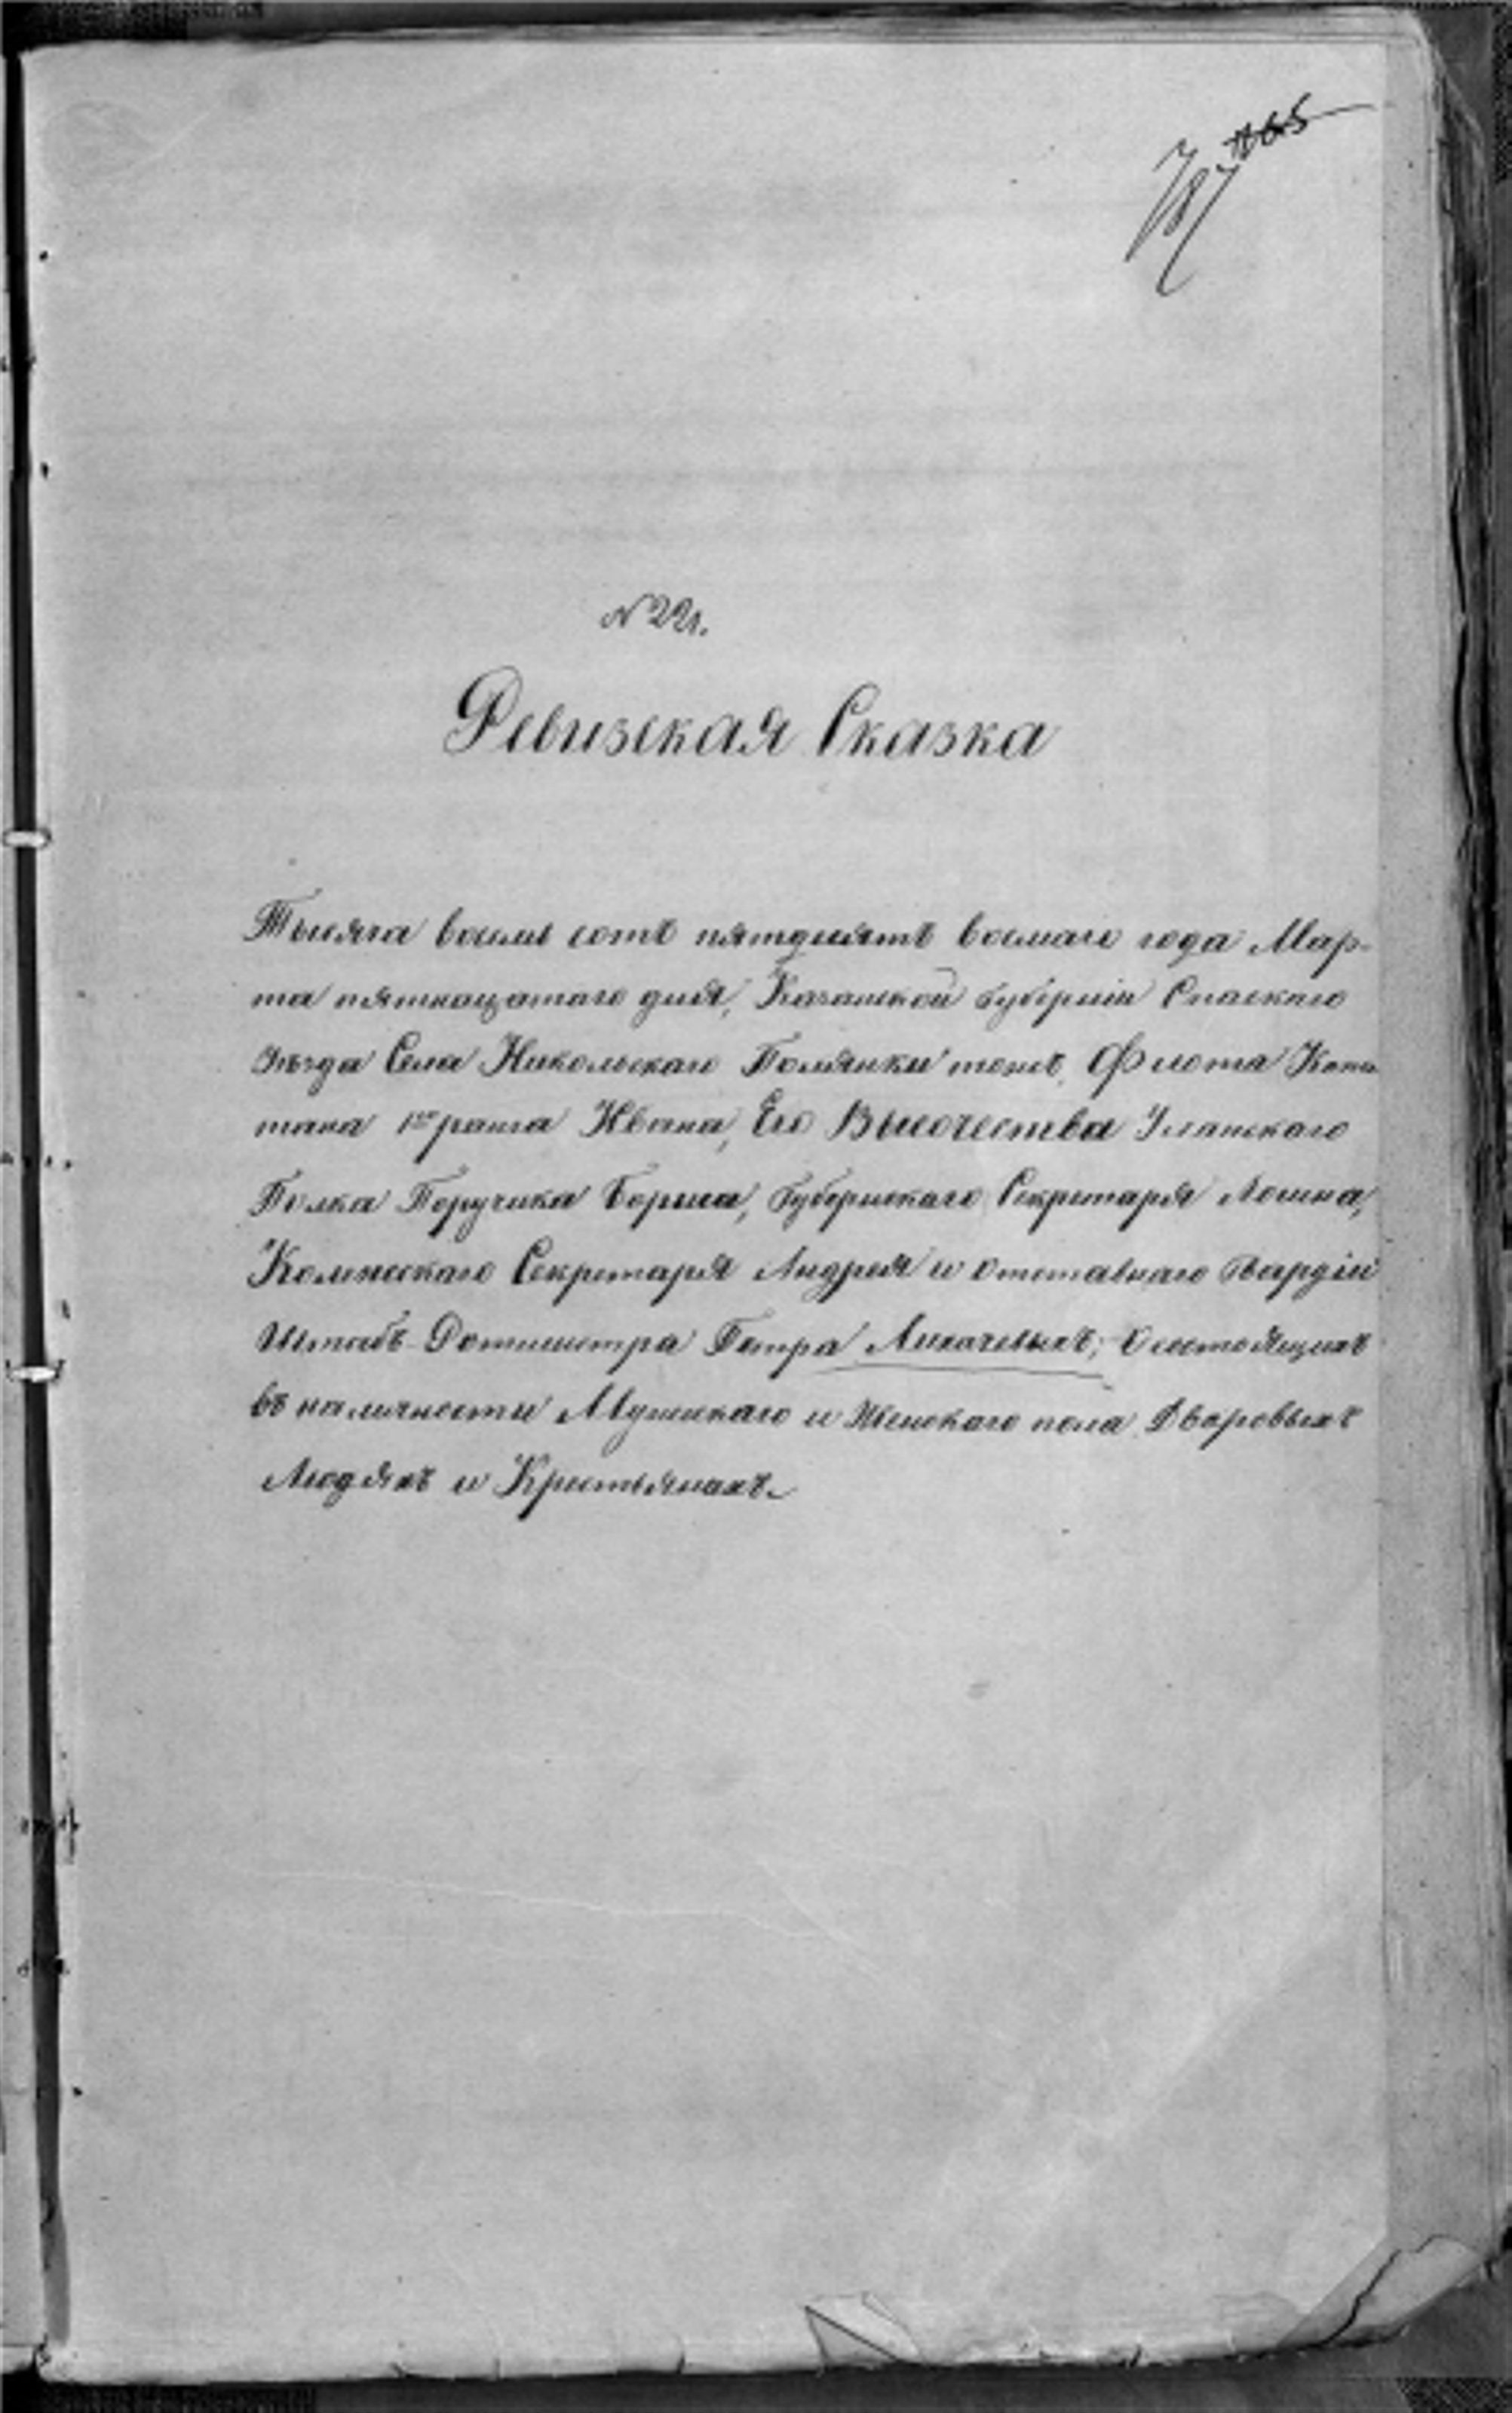 787
№ 221.
Ревизская Сказка
Тысяча восемь сотъ пятдесятъ восмаго года Мар-
та пятнацатаго дня, Казанской Губерніи Спаскаго
Уѣзда Села Никольскаго Полянки тожъ, Флота Капи
тана 1го ранга Ивана, Его Высочества Уланскаго
Полка Поручика Бориса, Губернскаго Секретаря
Колежскаго Секретаря Андрея и отставнаго Гвардіи
Штабъ-Ротмистра Петра Лихачевыхъ; О состоящихъ
въ наличности Мужскаго и Женскаго пола Дворовыхъ
Людяхъ и Крестьянахъ.